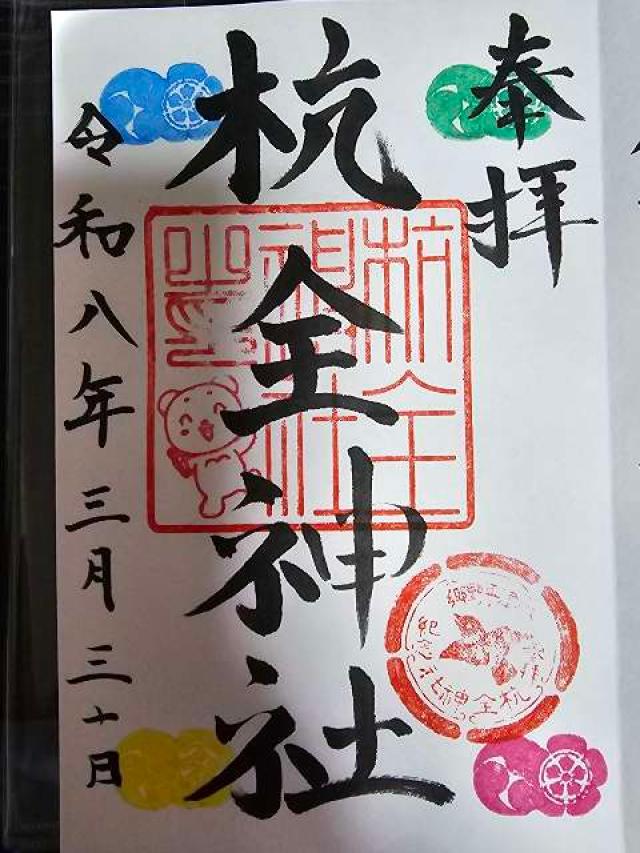 奉拝
杭全神社
令和八年三月三十日
杭全
神社
之印
杭全神社
紀念